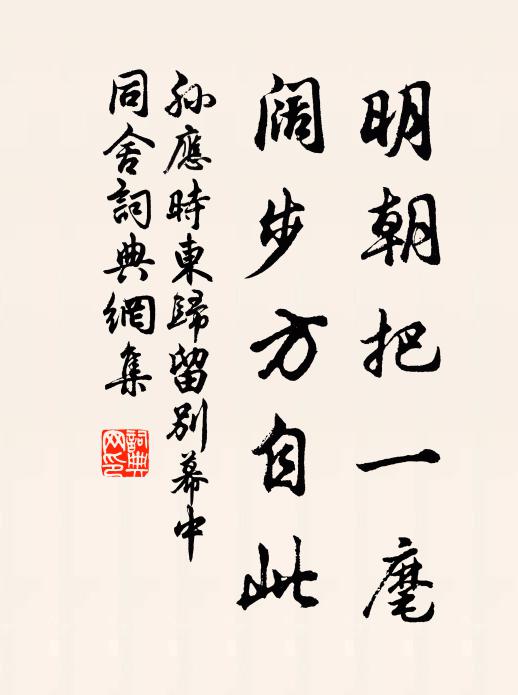 明朝把一麾
阔步方自此
孙應時東歸留别幕中
同舍詞典網集
詞典網印